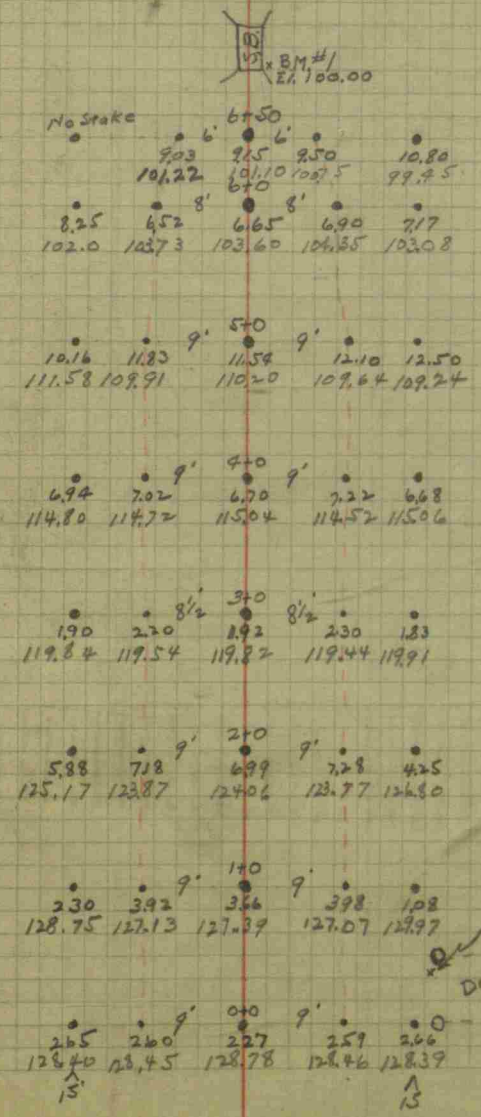 S.B.
B.M.#1
El. 100.00
6+50
No Stake 6' 6'
9.03 9.15 9.50 10.80
101.22 101.10 100.75 99.45
6+0
8' 8'
8.25 6.52 6.65 6.90 7.17
102.0 103.73 103.60 103.08
5+0
9' 9'
10.16 11.83 11.54 12.10 12.50
111.58 109.91 110.20 109.64 109.24
4+0
9' 9'
6.94 7.02 6.70 7.22 6.68
114.80 114.72 115.04 114.52 115.06
3+0
8 1/2' 8 1/2'
1.90 2.20 1.92 2.30 1.83
119.84 119.54 119.82 119.44 119.91
2+0
9' 9'
5.88 7.18 6.99 7.28 4.25
125.17 123.87 124.06 123.77 126.80
1+0
9' 9'
2.30 3.92 3.66 3.98 1.08
128.75 127.13 127.39 127.07 129.97
0+0
9' 9'
2.65 2.60 2.27 2.59 2.66
128.40 128.45 128.78 128.46 128.39
15' 15